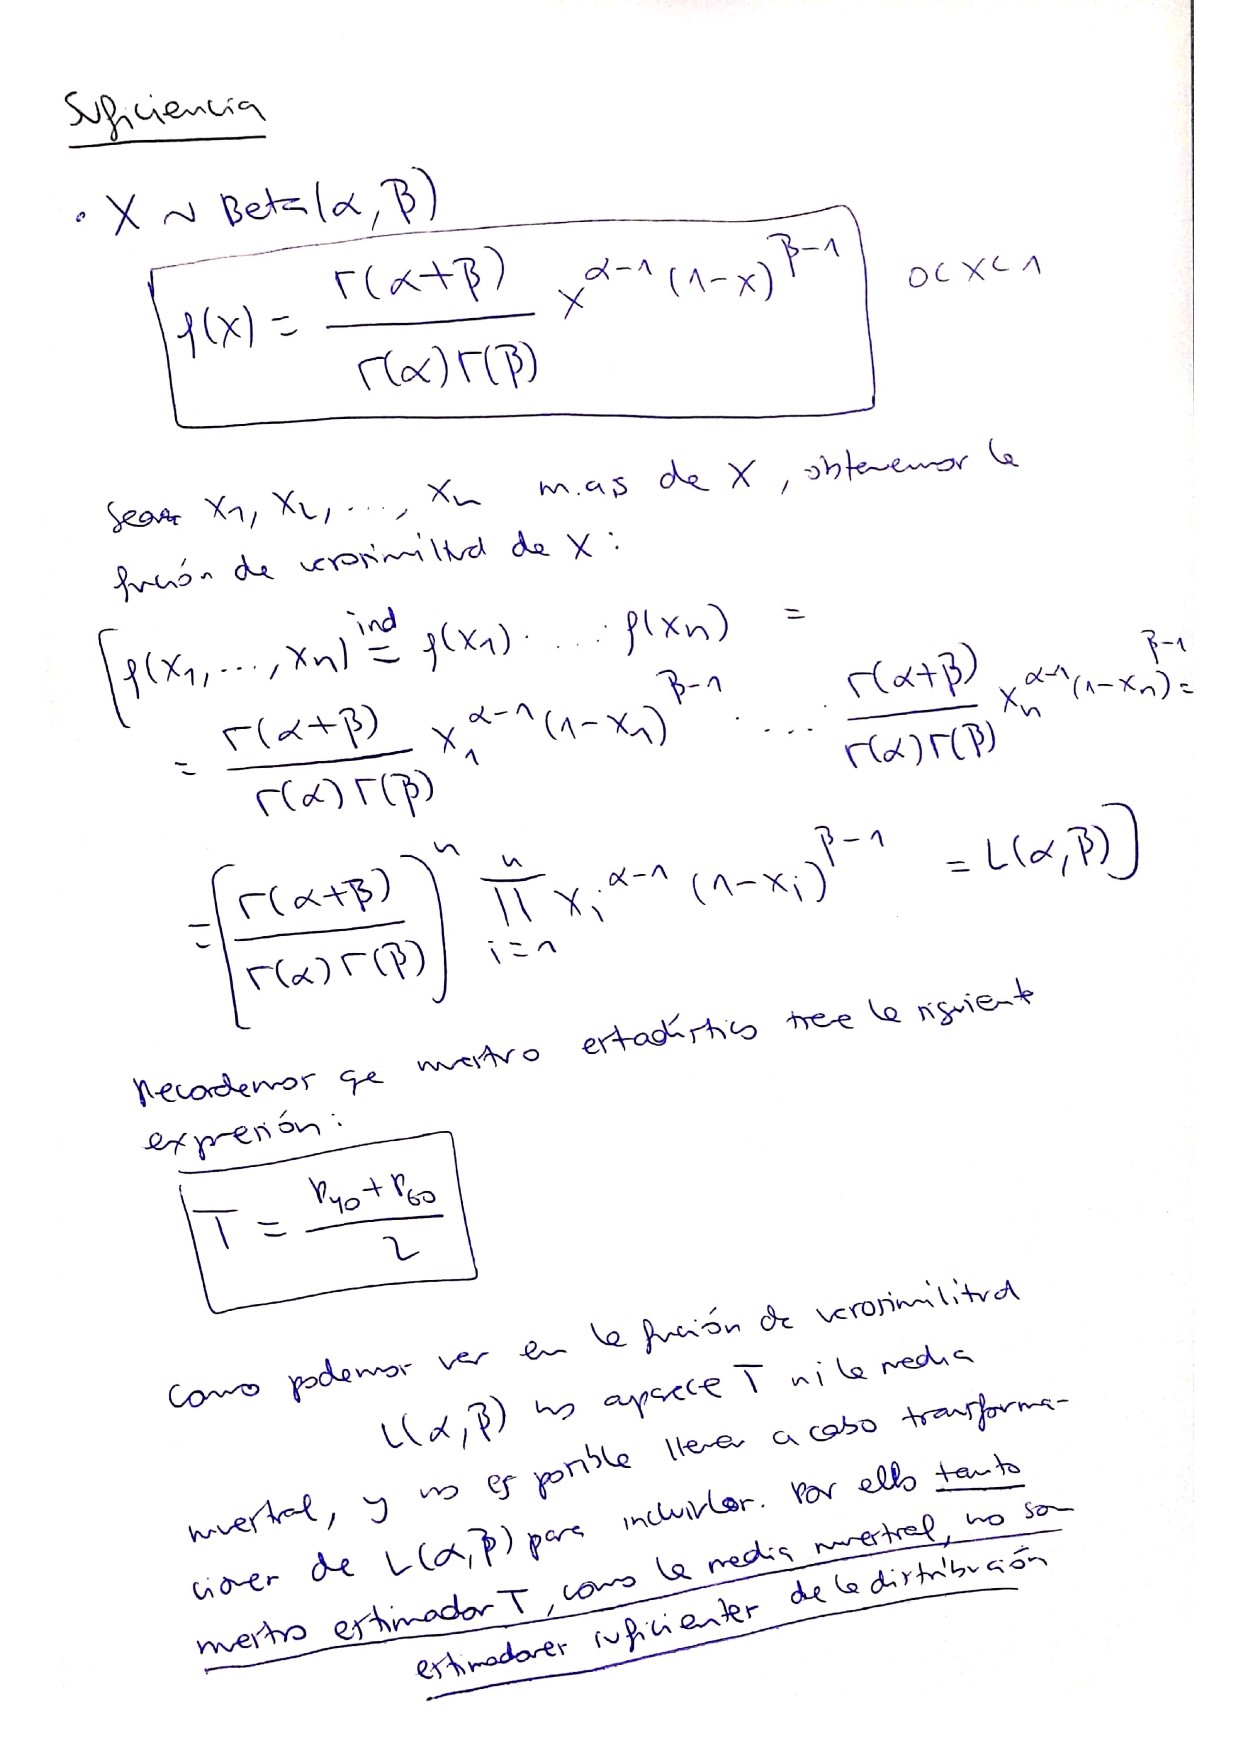 Suficiencia
· X ~ Beta(α, β)
f(x) = Γ(α+β) / Γ(α)Γ(β) x^{α-1} (1-x)^{β-1}   0<x<1
Sean x₁, x₂, ..., xₙ m.a.s de X, obtenemos la
función de verosimilitud de X:
[f(x₁, ..., xₙ) =^{ind} f(x₁)· ... · f(xₙ) =
= Γ(α+β) / Γ(α)Γ(β) x₁^{α-1} (1-x₁)^{β-1} · ... Γ(α+β) / Γ(α)Γ(β) xₙ^{α-1} (1-xₙ)^{β-1} =
= [Γ(α+β) / Γ(α)Γ(β)]^n ∏_{i=1}^{n} x_i^{α-1} (1-x_i)^{β-1} = L(α, β)]
Recordemos que nuestro estadístico tiene la siguiente
expresión:
T = (P₄₀ + P₆₀) / 2
Como podemos ver en la función de verosimilitud
L(α, β) no aparece T ni la media
muestral, y no es posible llevar a cabo transforma-
ciones de L(α, β) para incluirlos. Por ello tanto
nuestro estimador T, como la media muestral, no son
estimadores suficientes de la distribución